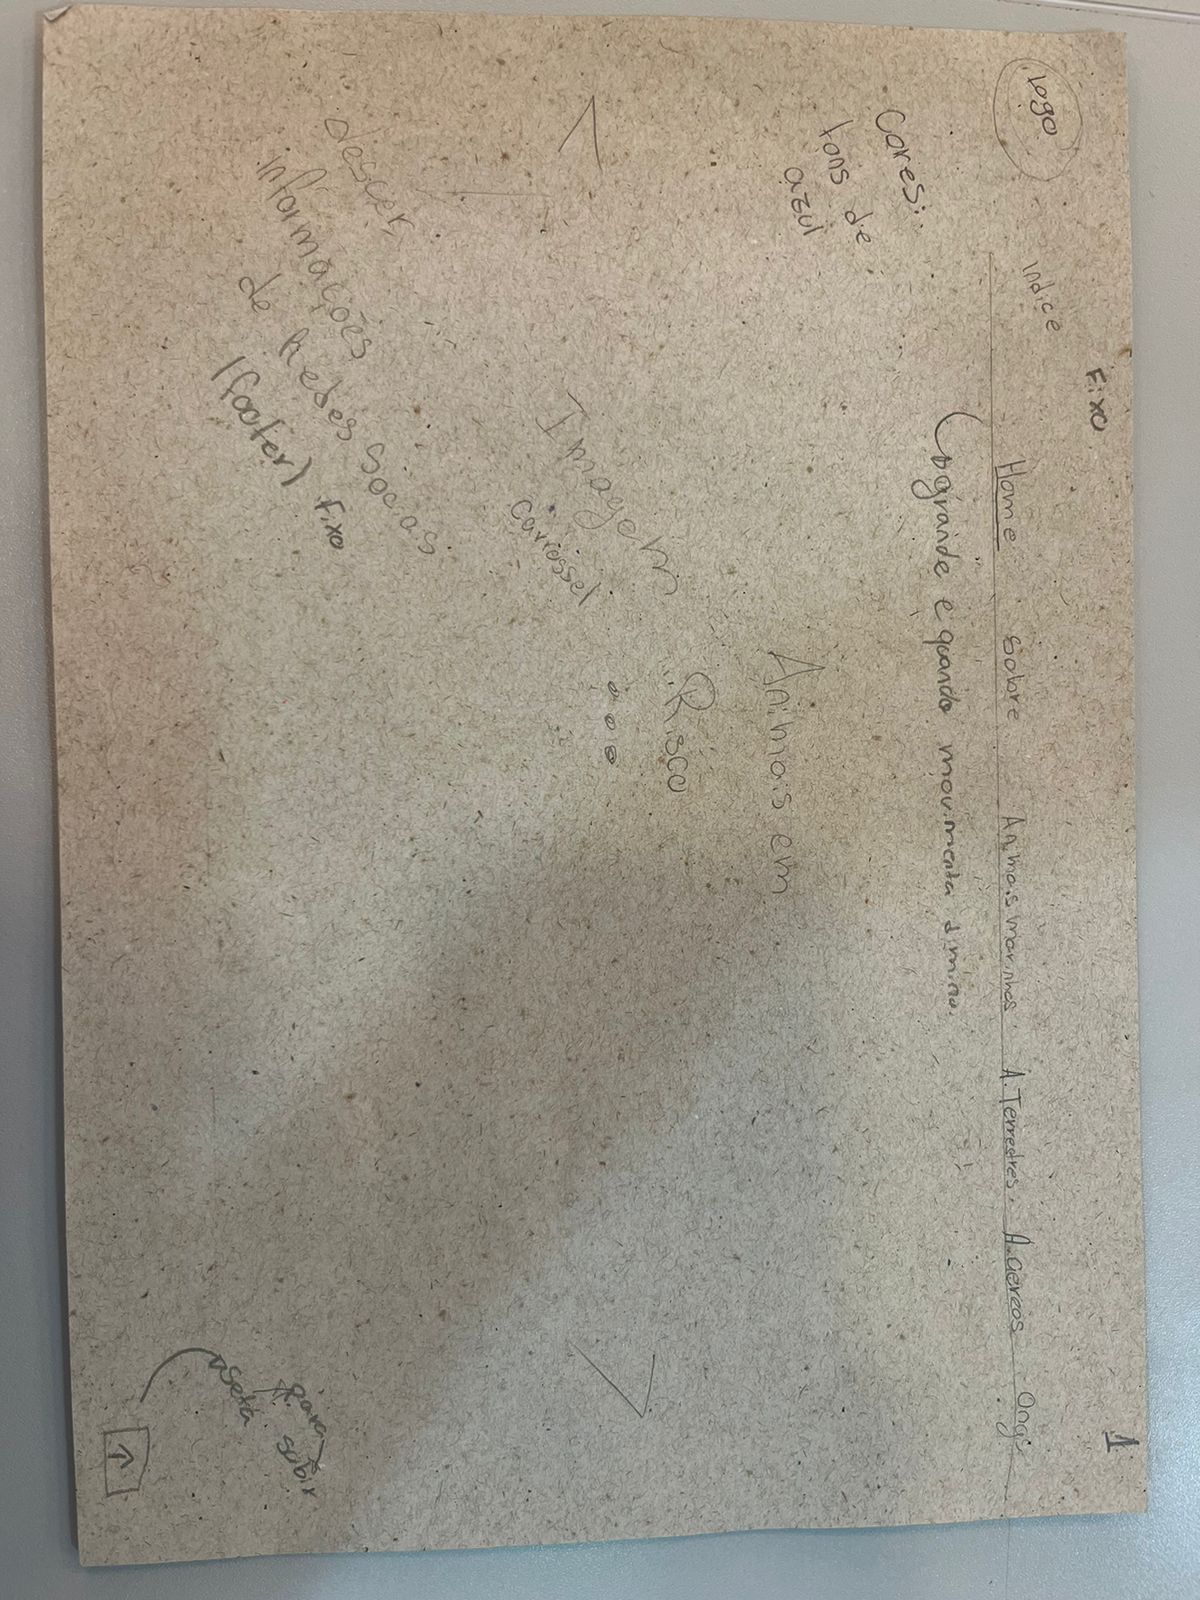 1
Fixo
Logo
Indice
Home Sobre Animais marinhos A. Terrestres. A. aereos Ongs
grande e quando movimenta diminui.
Cores:
tons de
azul
Animais em
Risco
Imagem
carrossel
descer
informações
de Redes Sociais
(footer) Fixo
seta para subir